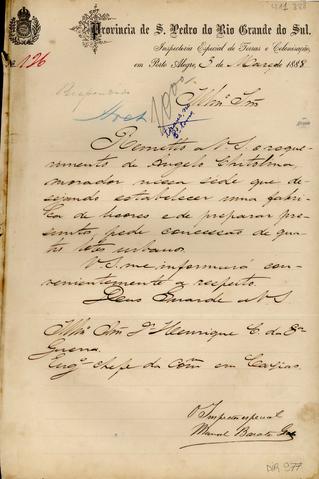 411 888
Provincia de S. Pedro do Rio Grande do Sul.
Inspectoria Especial de Terras e Colonisação,
em Porto Alegre, 3 de Março de 1888
Nº 126
Respondido
Illmº Snr
Remetto a V. S. o reque-
rimento de Angelo Chitolina,
morador nessa séde que de-
sejando estabelecer uma fabri-
ca de licores e de preparar pre-
suntos pede concessão de qua-
tro lotes urbanos.
V. S. me informará con-
venientemente a respeito.
Deus Guarde a V. S.
Illmº Snr Dr Henrique C. da
Guerra.
Engº Chefe da Comm em Caxias
O Inspector especial
Manoel Barata